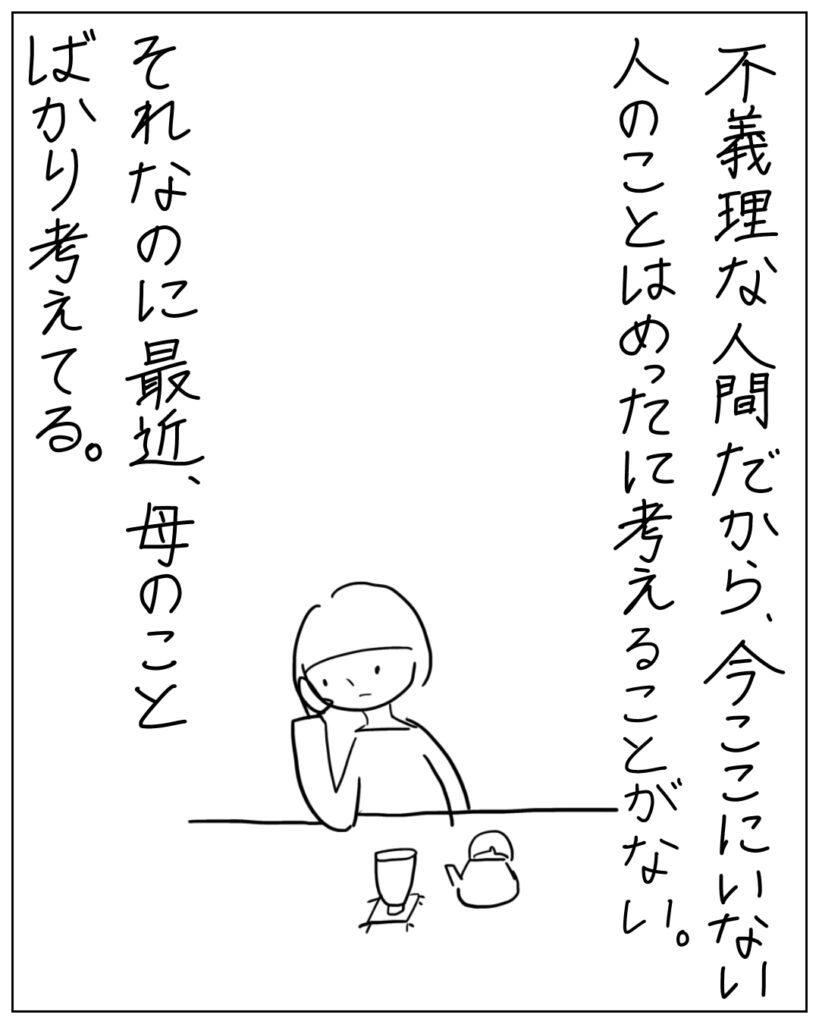 不義理な人間だから、今ここにいない
人のことはめったに考えることがない。
それなのに最近、母のこと
ばかり考えてる。